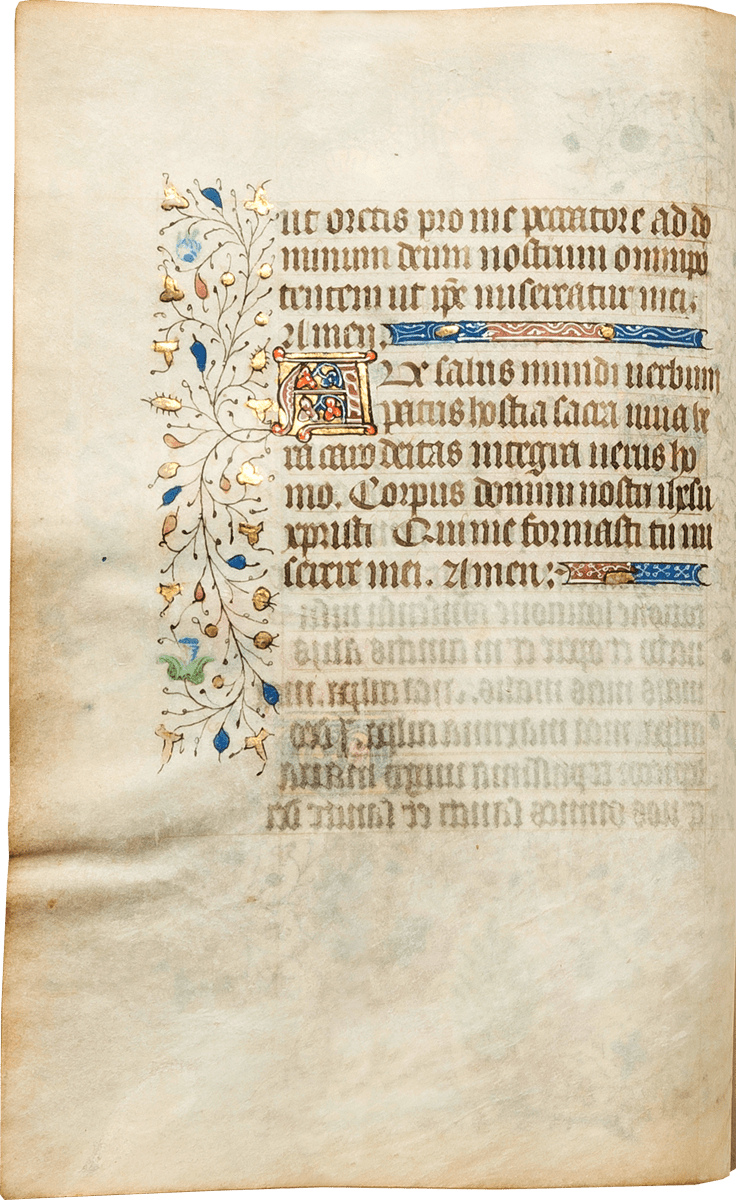 ut oretis pro me peccatore ad do
minum deum nostrum omnipo
tentem ut ip̄e misereatur mei.
Amen.
AUe salus mundi uerbum
patris hostia sacra uiua ve
ra caro deitas integra uerus ho
mo. Corpus domini nostri ihesu
xpristi Qui me formasti tu mi
serere mei. Amen: